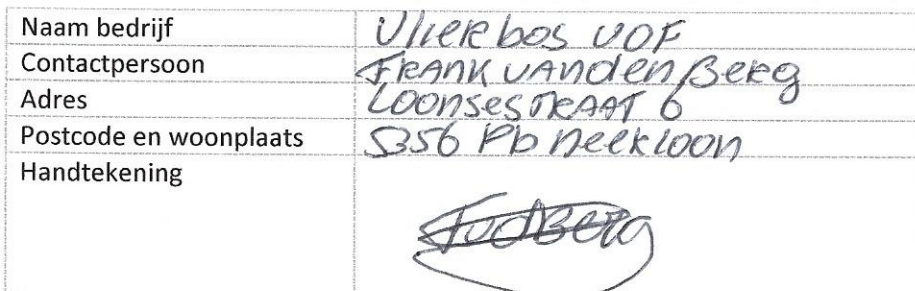 Naam bedrijf Vlierbos VOF
Contactpersoon FRANK VAnden Berg
Adres Loonsestraat 6
Postcode en woonplaats 5356 Pb neerloon
Handtekening FvdBerg